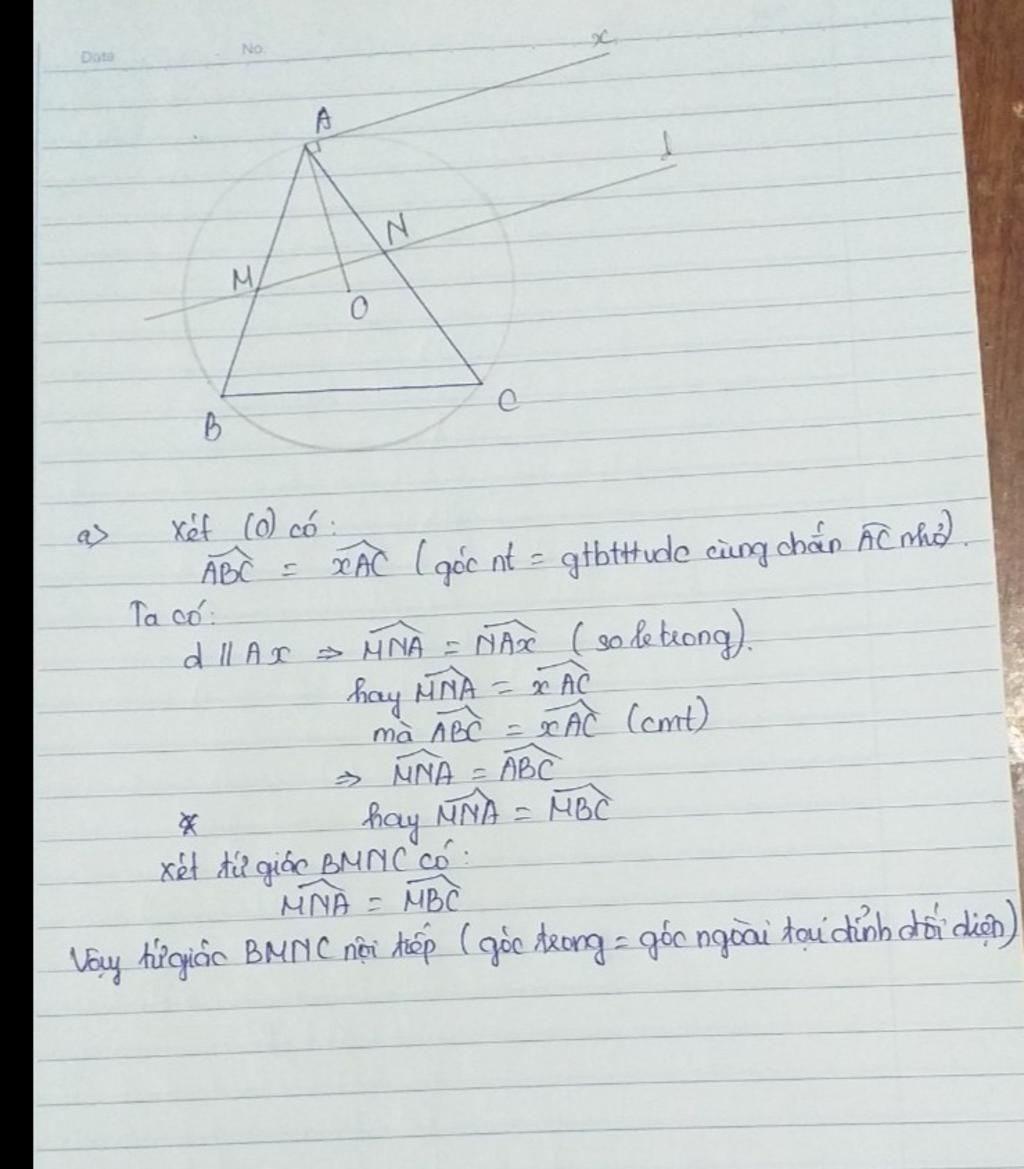 Date No
x
A
d
N
M
O
B
C
a) Xét (O) có:
ABC = xAC (góc nt = gtbtttvdc cùng chắn AC nhỏ).
Ta có:
d // Ax => MNA = NAx (so le trong).
hay MNA = xAC
mà ABC = xAC (cmt)
=> MNA = ABC
* hay MNA = MBC
Xét tứ giác BMNC có:
MNA = MBC
Vậy tứ giác BMNC nội tiếp (góc trong = góc ngoài tại đỉnh đối diện)